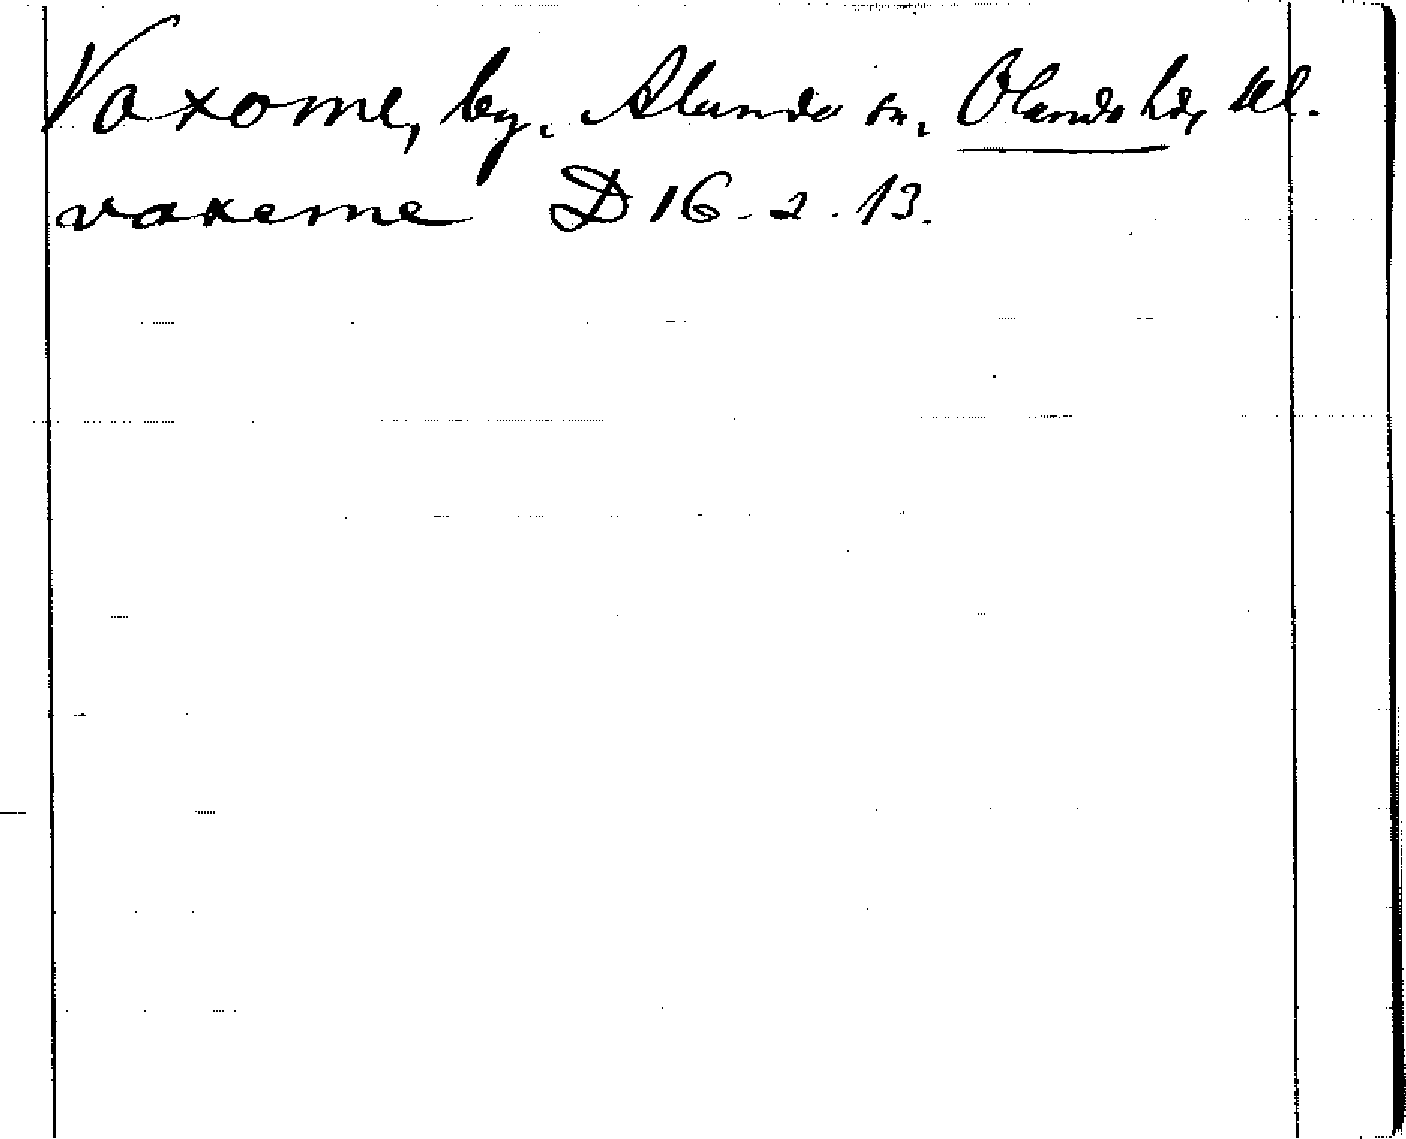 Vaxome, by, Alunda sn, Olands hd, Upl.
vaxeme D 16-2.13.